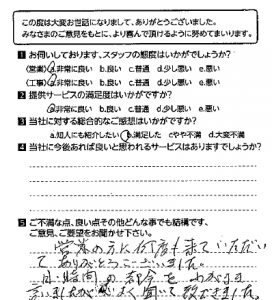 この度は大変お世話になりまして、ありがとうございました。
みなさまのご意見をもとに、より喜んで頂けるように努めてまいります。
1 お伺いしております、スタッフの態度はいかがでしょうか?
(営業) a.非常に良い b.良い c.普通 d.少し悪い e.悪い
(工事) a.非常に良い b.良い c.普通 d.少し悪い e.悪い
2 提供サービスの満足度はいかがですか?
a.非常に良い b.良い c.普通 d.少し悪い e.悪い
3 当社に対する総合的なご感想はいかがですか?
a.知人にも紹介したい b.満足した c.やや不満 d.大変不満
4 当社に今後あれば良いと思われるサービスはありますでしょうか?
5 ご不満な点、良い点その他どんな事でも結構です、
ご意見、ご要望をお聞かせ下さい。
営業の方に何度も来ていただい
てありがとうございました。
日、時間の都合を